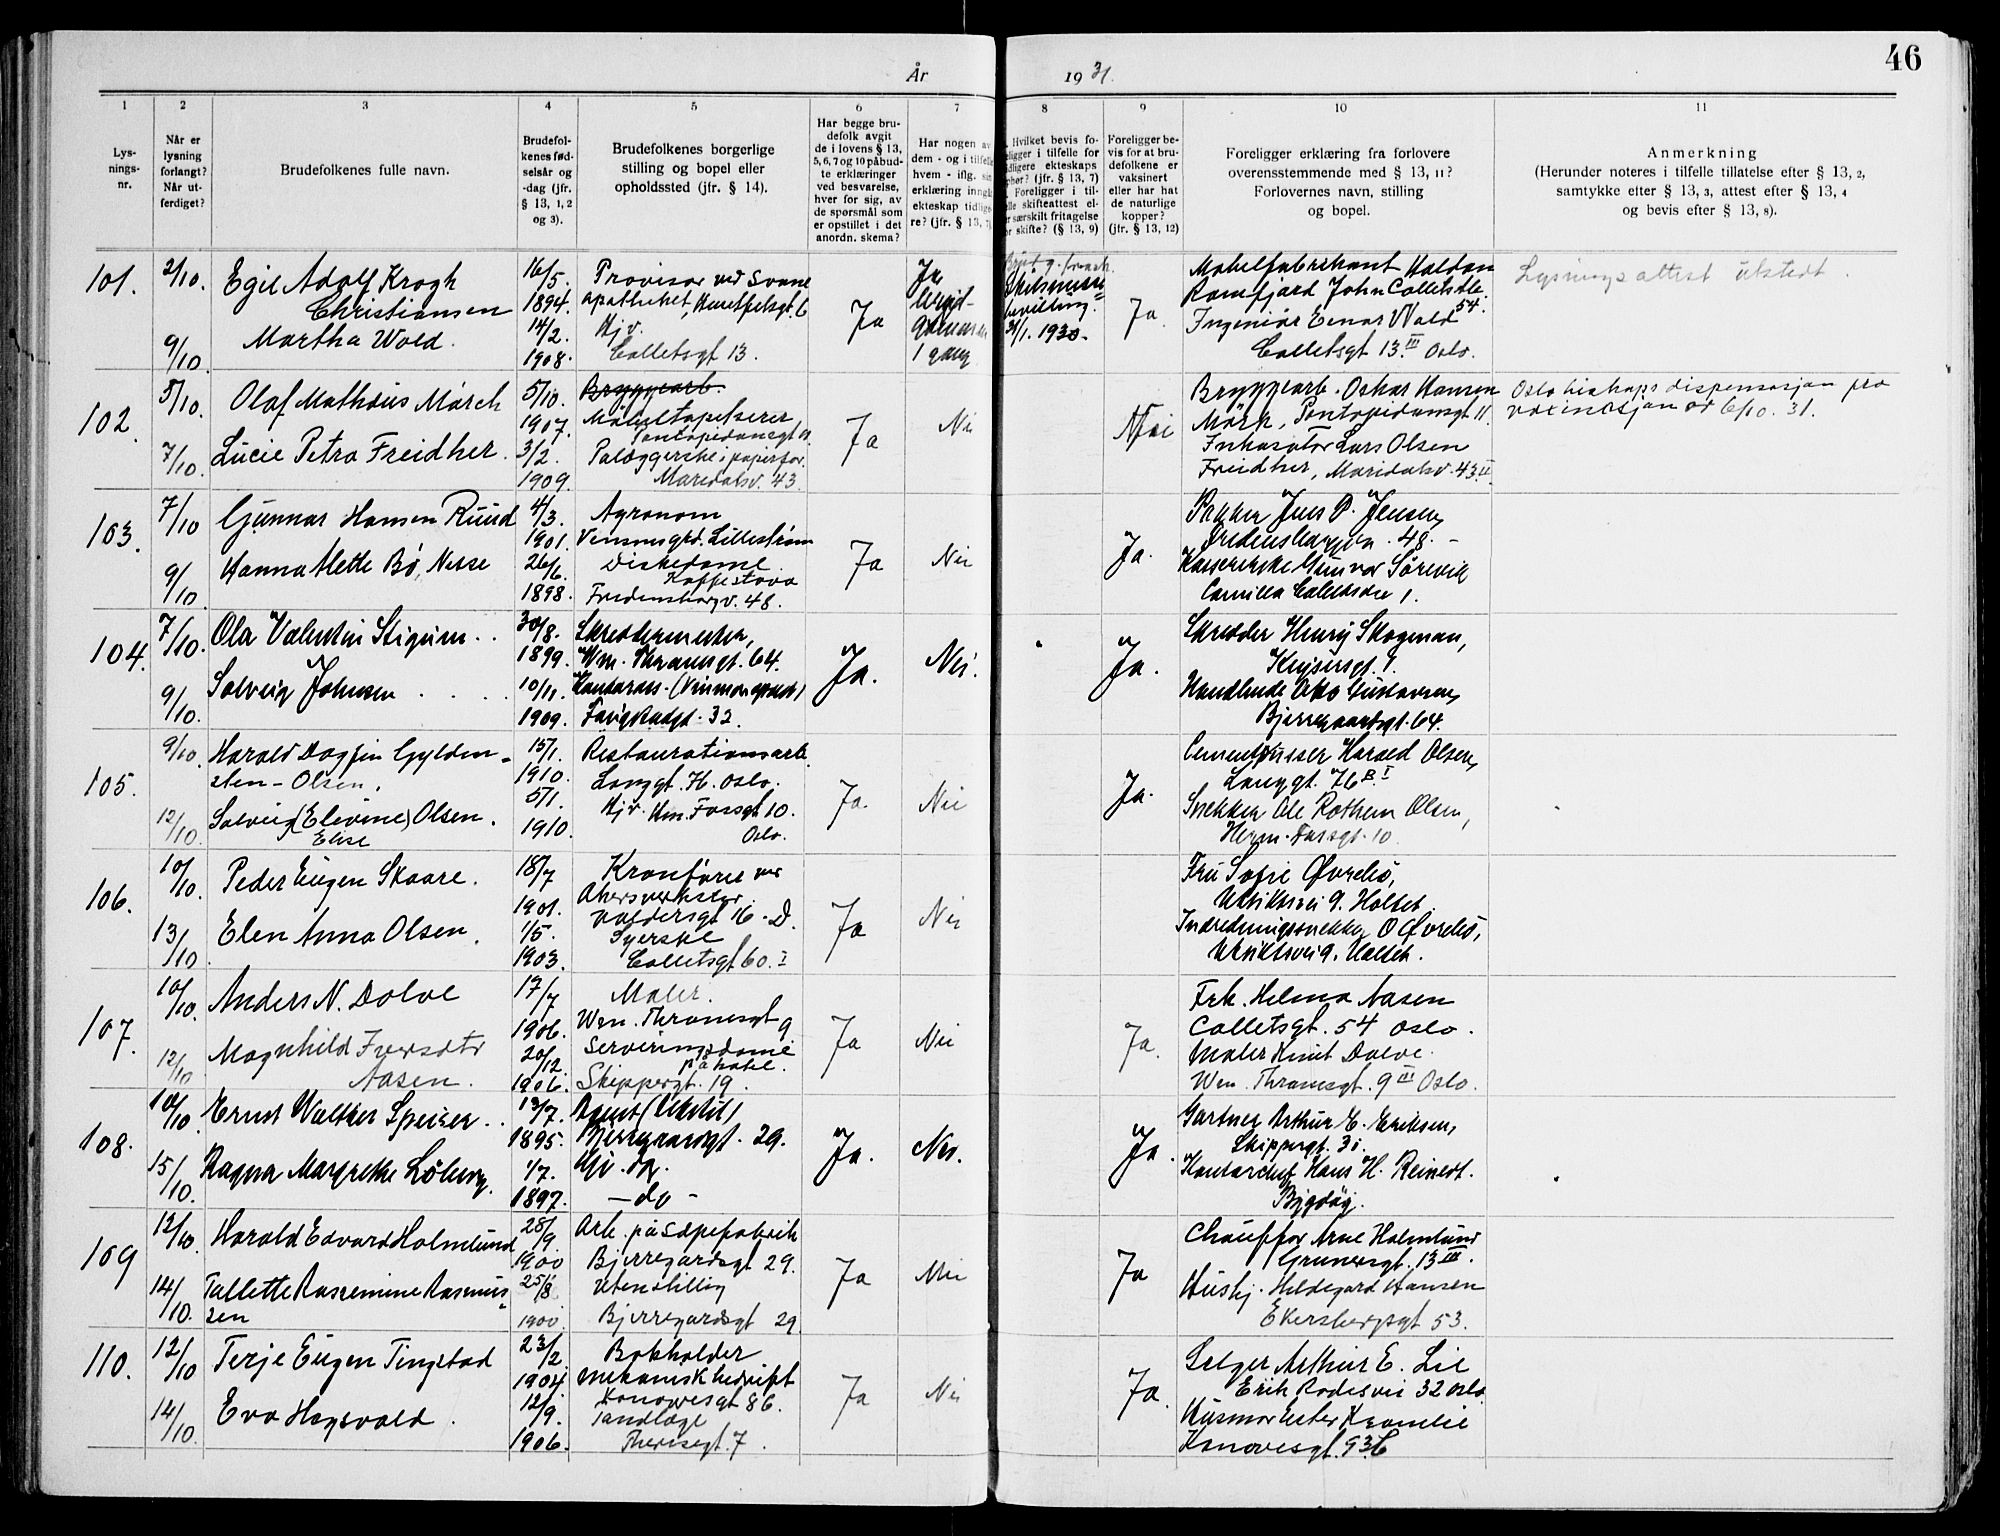 46
År 1931.
1 2 3 4 5 6 7 8 9 10 11
Lys-
nings-
nr.
Når er
lysning
forlangt?
Når ut-
ferdiget?
Brudefolkenes fulle navn.
Brudefol-
kenes fød-
selsår og
-dag (jfr.
§ 13, 1, 2
og 3).
Brudefolkenes borgerlige
stilling og bopel eller
opholdssted (jfr. § 14).
Har begge bru-
defolk avgit
de i lovens § 13,
5, 6, 7 og 10 påbud-
te erklæringer
ved besvarelse,
hver for sig, av
de spørsmål som
er opstillet i det
anordn. skema?
Har nogen av
dem - og i tilfelle
hvem - iflg. sin
erklæring inngått
ekteskap tidlige-
re? (jfr. § 13, 7)
Hvilket bevis fo-
religger i tilfelle for
tidligere ekteskaps
ophør? (jfr. § 13, 7)
Foreligger i til-
felle skifteattest el-
ler særskilt fritagelse
for skifte? (§ 13, 9)
Foreligger be-
vis for at bru-
defolkene er
vaksinert
eller har hat
de naturlige
kopper?
(jfr. § 13, 12)
Foreligger erklæring fra forlovere
overensstemmende med § 13, 11?
Forlovernes navn, stilling
og bopel.
Anmerkning
(Herunder noteres i tilfelle tillatelse efter § 13, 2,
samtykke efter § 13, 3, attest efter § 13, 4
og bevis efter § 13, 8).
101.
2/10.
9/10.
Egil Adolf Krogh
Christiansen
Martha Wold.
16/5.
1894.
14/2.
1908.
Provisor ved Svane
apotheket,
Hjv.
Colletsgt 13.
Ja
Ja
1 gang
31/1. 1930.
Ja.
Møbelfabrikant Haldan
Ramfjord John Colletsalle
54.
Ingeniør Einar Wold
Colletsgt 13 III Oslo.
Lysningsattest utstedt.
102.
5/10.
7/10.
Olaf Mathæus Mörch
Lucie Petra Freidher.
5/10.
1907.
3/2.
1909.
Bryggearb.
Møbeltapetserer
Pontopidansgt 11
Palæggerske i papirfor.
Maridalsv. 43.
Ja
Nei
Nei
Bryggearb. Oskar Hansen
Mörk, Pontopidansgt 11.
Inkasator Lars Olsen
Freidher, Maridalsv. 43 II.
Oslo biskops dispensasjon fra
vaxinasjon av 6/10. 31.
103.
7/10
9/10
Gunnar Hansen Ruud
Hanna Mette Bö, Nesse
4/3.
1901.
26/6.
1898.
Agronom
Lillestrøm
Diskedame.
Kaffestova
Fredensborgv. 48.
Ja
Nei
Ja.
Pakker Jens P. Jensen,
Fredensborgvn. 48.
Kasererske Gunvor Sörevik
Camilla Colletsvei 1.
104.
7/10.
9/10.
Ola Valentin Stigum..
Solveig Johnsen
30/8.
1899.
10/11.
1909.
Skreddermester,
Wm. Thranesgt. 64.
Kontorass. (Vinmonopolet)
Fougstadgt. 32.
Ja.
Nei.
Ja.
Skredder Henry Skogman,
Keysersgt. 1.
Handlende Otto Gustavsen,
Bjerregaardsgt. 64.
105.
9/10
12/10.
Harald Dagfin Gylden-
sten-Olsen.
Solveig (Elevine) Olsen.
Elise
15/1.
1910.
5/1.
1910.
Restaurationsarb.
Langgt. Oslo.
Hjv. Hm. Fossgt 10.
Oslo.
Ja.
Nei
Ja.
Cementpusser Harald Olsen,
Langgt. 76 B I
Snekker Ole Rothem Olsen,
Herm. Fossgt. 10.
106.
10/10.
13/10.
Peder Eugen Skaare.
Elen Anna Olsen.
18/7
1901.
1/5.
1903.
Kranfører ved
Akersverksted.
Valdersgt 16. D.
Syerske
Colletsgt 60. I
Ja
Nei
Fru Sofie Øvrebö,
Utsiktsvei 9. Holtet.
Indredningssnekker O Øvrebö,
Utsiktsvei 9. Holtet.
107.
10/10.
12/10
Anders N. Dolve
Magnhild Iversdtr
Aasen.
17/7
1906.
20/12.
1906.
Maler.
Wm. Thranesgt 9
Serveringsdame
på hotel.
Skippergt. 19.
Ja
Nei
Ja.
Frk. Helma Aasen
Colletsgt. 54 Oslo.
Maler Knut Dolve.
Wm. Thranesgt. 9 III Oslo.
108.
10/10.
15/10.
Ernst Walther Speiser..
Ragna Margrethe Löberg.
13/7.
1895.
1/7.
1897.
Agent (Tekstil)
Bjerregaardsgt. 29.
- do -
Ja.
Nei.
Ja.
Gartner Arthur E. Eriksen,
Skippergt. 31.
Kontorchef Hans H. Reinert.
Bygdøy.
109
12/10.
14/10.
Harald Edvard Holmlund
Tallette Rasemine Rasmus-
sen
28/9
1900
25/8
1900.
Arb. på Såpefabrik
Bjerregardsgt 29.
Uten stilling
Bjerregardsgt 29.
Ja
Nei
Ja
Chauffør Arne Holmlund
Grunersgt. 13 III.
Hushj. Hildegard Hansen
Ekersbergsgt 53.
110.
12/10
14/10.
Terje Eugen Tingstad
Eva Hogsvold.
23/2.
1904.
12/9.
1906.
Bokholder
mekanisk bedrift
Konowsgt 86.
Tandlæge
Theresegt. 7.
Ja
Nei
Ja.
Selger Arthur E. Lie
Erik Rodesvei 32 Oslo.
Husmor Ester Kramlie
Konowsgt. 93 C